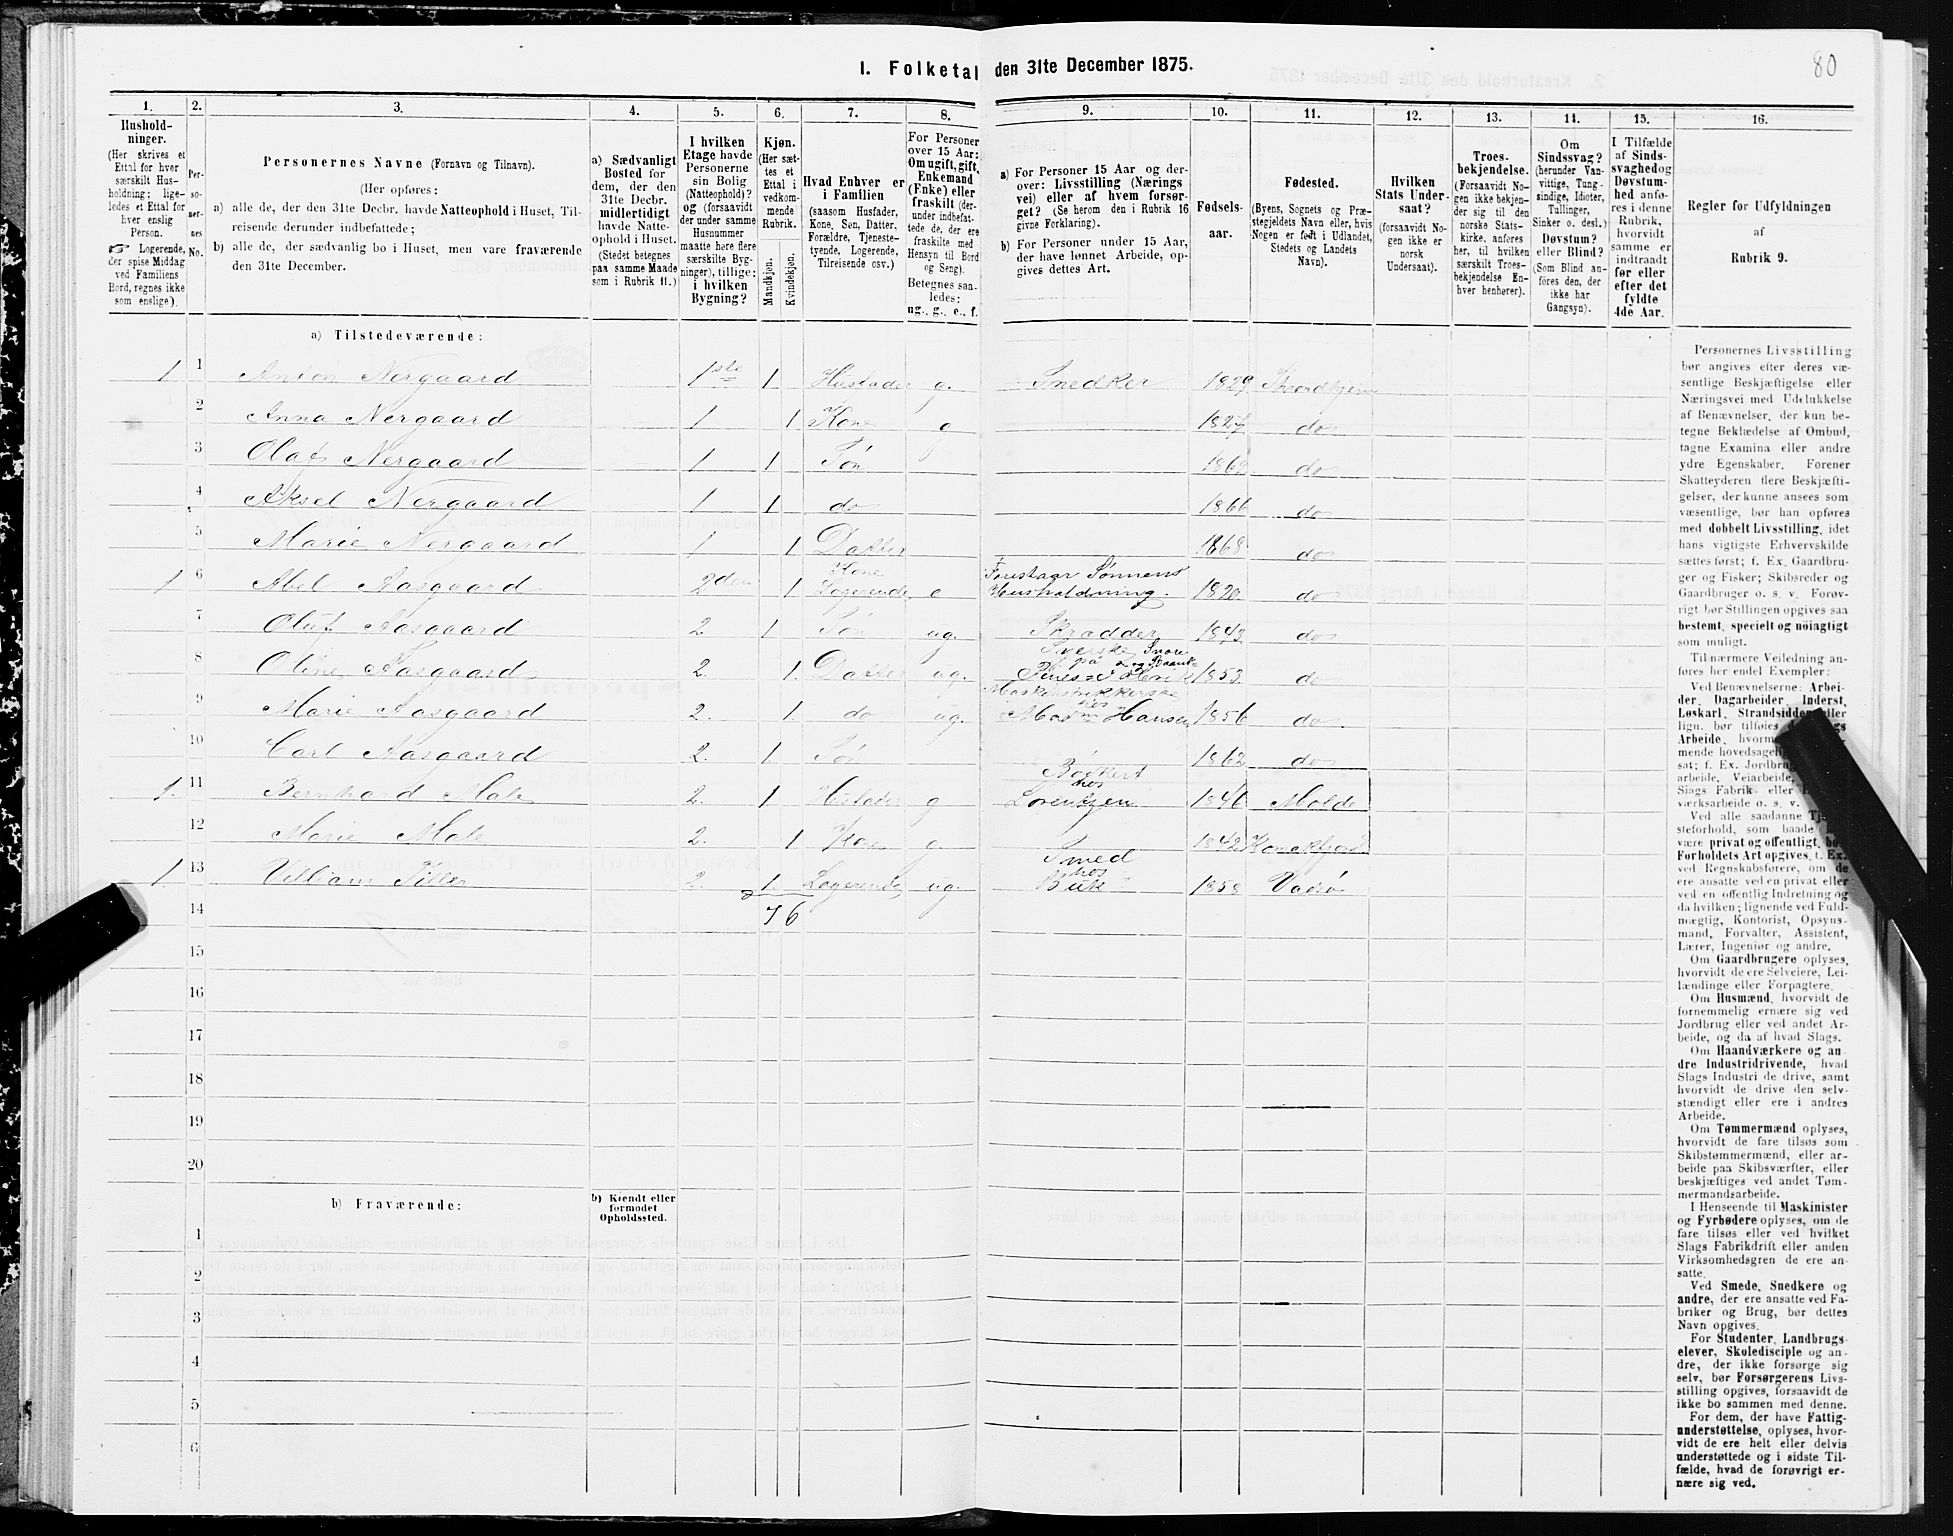 80
I. Folketal den 31te December 1875.
1. 2. 3. 4. 5. 6. 7. 8. 9. 10. 11. 12. 13. 14. 15. 16.
Hushold-
ninger.
(Her skrives et
Ettal for hver
særskilt Hus-
holdning; lige-
ledes et Ettal for
hver enslig
Person.
☞ Logerende,
der spise Middag
ved Familiens
Bord, regnes ikke
som enslige).
Per-
so-
ner-
nes
No.
Personernes Navne (Fornavn og Tilnavn).
(Her opføres:
a) alle de, der den 31te Decbr. havde Natteophold i Huset, Til-
reisende derunder indbefattede;
b) alle de, der sædvanlig bo i Huset, men vare fraværende
den 31te December.
a) Sædvanligt
Bosted for
dem, der den
31te Decbr.
midlertidigt
havde Natte-
ophold i Huset.
(Stedet betegnes
paa samme Maade
som i Rubrik 11.)
I hvilken
Etage havde
Personerne
sin Bolig
(Natteophold)?
og (forsaavidt
der under samme
Husnummer
maatte høre flere
særskilte Byg-
ninger), tillige:
i hvilken
Bygning?
Kjøn.
(Her sæt-
tes et
Ettal i
vedkom-
mende
Rubrik.
Mandkjøn.
Kvindekjøn.
Hvad Enhver er
i Familien
(saasom Husfader,
Kone, Søn, Datter,
Forældre, Tjeneste-
tyende, Logerende,
Tilreisende osv.)
For Personer
over 15 Aar:
Om ugift, gift,
Enkemand
(Enke) eller
fraskilt (der-
under indbefat-
tede de, der ere
fraskilte med
Hensyn til Bord
og Seng).
Betegnes saa-
ledes:
ug., g., e., f.
a) For Personer 15 Aar og der-
over: Livsstilling (Nærings
vei) eller af hvem forsør-
get? (Se herom den i Rubrik 16
givne Forklaring).
b) For Personer under 15 Aar,
der have lønnet Arbeide, op-
gives dettes Art.
Fødsels-
aar.
Fødested.
(Byens, Sognets og Præ-
stegjeldets Navn eller, hvis
Nogen er født i Udlandet,
Stedets og Landets
Navn).
Hvilken
Stats Under-
saat?
(forsaavidt No-
gen ikke er
norsk
Undersaat).
Troes-
bekjendelse.
(Forsaavidt No-
gen ikke bekjen-
der sig til den
norske Stats-
kirke, anføres
her, til hvilken
særskilt Troes-
bekjendelse En-
hver henhører).
Om
Sindssvag?
(herunder Van-
vittige, Tung-
sindige, Idioter,
Tullinger,
Sinker o. desl.)
Døvstum?
eller Blind?
(Som Blind an-
føres den, der
ikke har
Gangsyn).
I Tilfælde
af Sinds-
svaghed og
Døvstum-
hed anfø-
res i denne
Rubrik,
hvorvidt
samme er
indtraadt
før eller
efter det
fyldte
4de Aar.
Regler for Udfyldningen
af
Rubrik 9.
a) Tilstedeværende:
1 1 Anton Nergaard 1ste 1 Husfader g. Snedker 1829 Throndhjem
2 Anna Nergaard 1 1 Kone g 1827 do
3 Olaf Nergaard 1 1 Søn 1862 do
4 Aksel Nergaard 1 1 do 1866 do
5 Marie Nergaard 1 1 Datter 1868 do
1 6 Abel Aasgaard 2den 1 Kone Logerende e Forestaar Sønnens Husholdning. 1820 do
7 Oluf Aasgaard 2 1 Søn ug. Skrædder 1843 do
8 Oline Aasgaard 2. 1. Datter ug. 1853 do
9 Marie Aasgaard 2. 1. do ug. Maskinstrikkerske hos Hansen 1856 do
10 Carl Aasgaard 2. 1 Søn 1862 do
1. 11 Bernhard Male 2. 1 Husfader g hos Lorentzen 1846 Molde
12 Marie Male 2. 1 Kone g. 1842
1 13 Villiam Tiller 2. 1. Logerende ug. Smed hos 1858 Vadsø
14 7 6
15
16
17
18
19
20
b) Fraværende:
b) Kjendt eller
formodet
Opholdssted.
1
2
3
4
5
6
Personernes Livsstilling
bør angives efter deres væ-
sentlige Beskjæftigelse eller
Næringsvei med Udelukkelse
af Benævnelser, der kun be-
tegne Beklædelse af Ombud,
tagne Examina eller andre
ydre Egenskaber. Forener
Skatteyderen flere Beskjæfti-
gelser, der kunne ansees som
væsentlige, bør han opføres
med dobbelt Livsstilling, idet
hans vigtigste Erhvervskilde
sættes først; f. Ex. Gaardbru-
ger og Fisker; Skibsreder og
Gaardbruger o. s. v. Forøv-
rigt bør Stillingen opgives saa
bestemt, specielt og nøiagtigt
som muligt.
Til nærmere Veiledning an-
føres her endel Exempler:
Ved Benævnelserne: Arbei-
der, Dagarbeider, Inderst,
Løskarl, Strandsidder eller
lign. bør tilføies
Arbeide,
mende hovedsagel
sat; f. Ex. Jordbrug
arbeide, Veiarbeide,
Slags Fabrik- eller
værksarbeide o. s. v.
Ved alle saadanne
steforhold, som baade
være privat og offentligt, bø
Forholdets Art opgives, f. Ex.
ved Regnskabsførere, om de
ere ansatte ved en privat eller
ved en offentlig Indretning og
da hvilken; lignende ved Fuld-
mægtig, Kontorist, Opsyns-
mand, Forvalter, Assistent,
Lærer, Ingeniør og andre.
Om Gaardbrugere oplyses,
hvorvidt de ere Selveiere, Lei-
lændinge eller Forpagtere.
Om Husmænd, hvorvidt de
fornemmelig ernære sig ved
Jordbrug eller ved andet Ar-
beide, og da af hvad Slags.
Om Haandværkere og an-
dre Industridrivende, hvad
Slags Industri de drive, samt
hvorvidt de drive den selv-
stændigt eller ere i andres
Arbeide.
Om Tømmermænd oplyses,
hvorvidt de fare tilsøs som
Skibstømmermænd, eller ar-
beide paa Skibsværfter, eller
beskjæftiges ved andet Tøm-
mermandsarbeide.
I Henseende til Maskinister
og Fyrbødere oplyses, om de
fare tilsøs eller ved hvilket
Slags Fabrikdrift eller anden
Virksomhedsgren de ere an-
satte.
Ved Smede, Snedkere og
andre, der ere ansatte ved Fa-
briker og Brug, bør dettes
Navn opgives.
For Studenter, Landbrugs-
elever, Skoledisciple og an-
dre, der ikke forsørge sig
selv, bør Forsørgerens Livs-
stilling opgives, forsaavidt de
ikke bo sammen med denne.
For dem, der have Fattig-
understøttelse, oplyses, hvor-
vidt de ere helt eller delvis
understøttede og i sidste Til-
fælde, hvad de forøvrigt er-
nære sig ved.